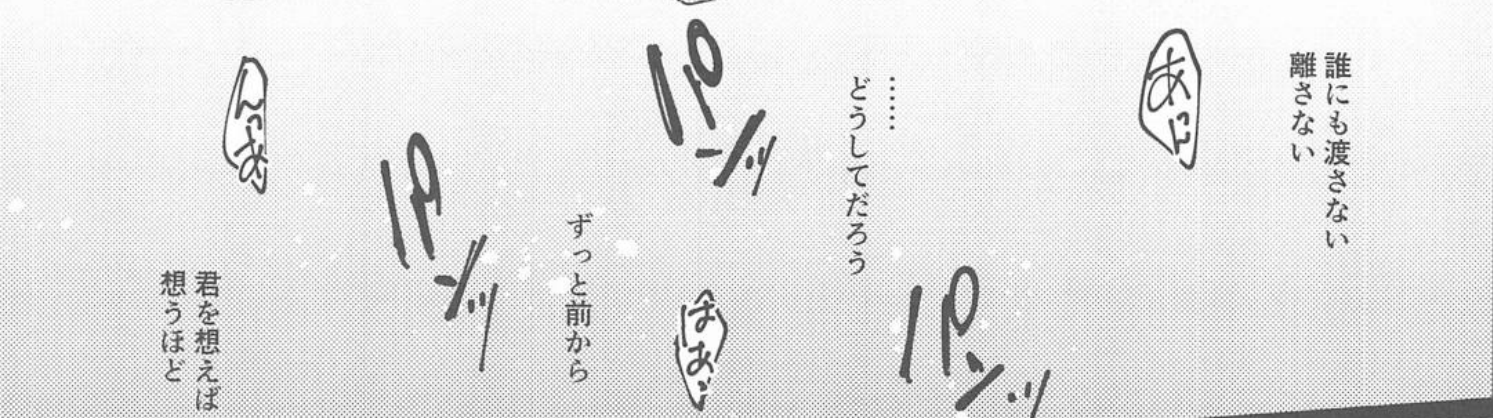 誰にも渡さない
離さない
あっ
パンッ
……
どうしてだろう
パンッ
はあ、
ずっと前から
パンッ
んっあ
君を想えば
想うほど